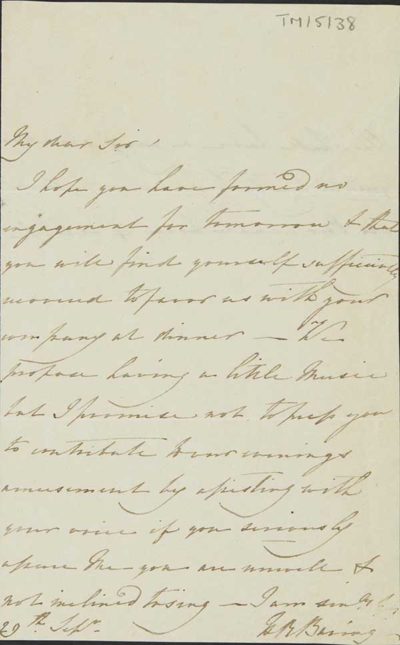 TM/5/38
My dear Sir,
I hope you have formed no
engagement for tomorrow & that
you will find yourself sufficiently
recovered to favor us with your
company at dinner — We
propose having a little Music
but I promise not to press you
to contribute to our evenings
amusement by assisting with
your voice if you seriously
assure me you are unwell &
not inclined to sing — I am
29th Sepr. Baring